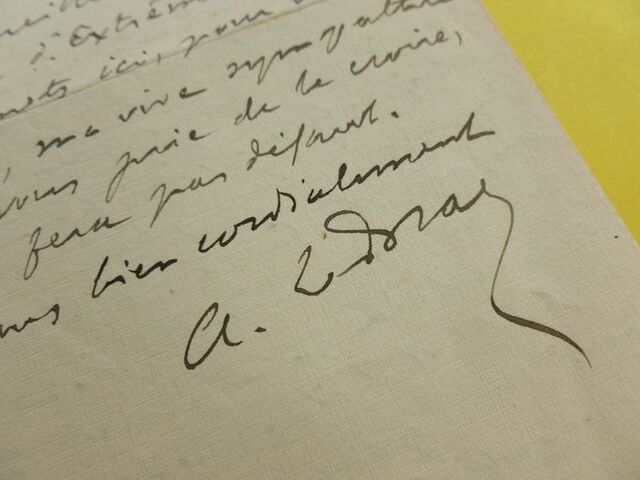 d'Extrême
mots ici, pour
ma vive sympathie
vous prie de le croire,
fera pas défaut.
bien cordialement
A.